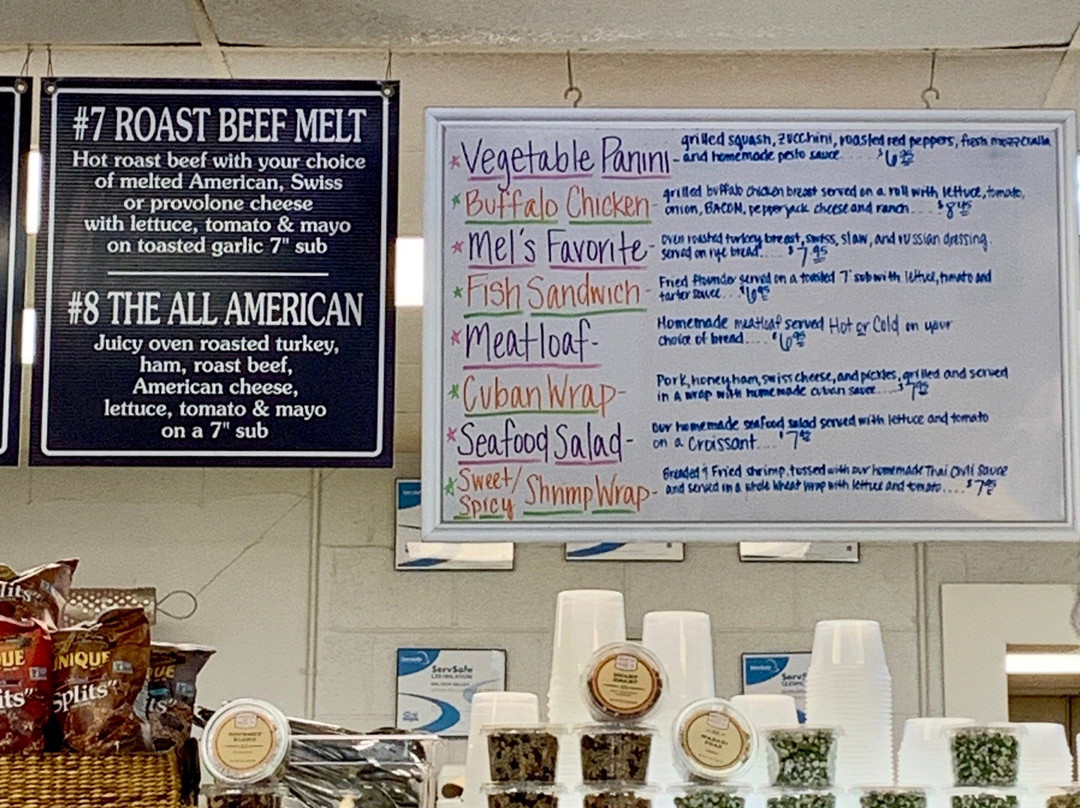 #7 ROAST BEEF MELT
Hot roast beef with your choice
of melted American, Swiss
or provolone cheese
with lettuce, tomato & mayo
on toasted garlic 7" sub
#8 THE ALL AMERICAN
Juicy oven roasted turkey,
ham, roast beef,
American cheese,
lettuce, tomato & mayo
on a 7" sub
*Vegetable Panini- grilled squash, zucchini, roasted red peppers, fresh mozzerella
and homemade pesto sauce..... $6.95
*Buffalo Chicken- grilled buffalo chicken breast served on a roll with lettuce, tomato,
onion, BACON, pepperjack cheese and ranch.... $8.45
*Mel's Favorite- oven roasted turkey breast, swiss, slaw, and russian dressing.
served on rye bread.... $7.95
*Fish Sandwich- Fried flounder served on a toasted 7" sub with lettuce, tomato and
tarter sauce... $6.95
*Meatloaf- Homemade meatloaf served Hot or Cold on your
choice of bread.... $6.95
*Cuban Wrap- Pork, honey ham, swiss cheese, and pickles, grilled and served
in a wrap with homemade cuban sauce.... $7.95
*Seafood Salad- our homemade seafood salad served with lettuce and tomato
on a Croissant.... $7.95
*Sweet/Spicy Shrimp Wrap- Breaded & Fried shrimp, tossed with our homemade Thai Chili Sauce
and served in a whole wheat wrap with lettuce and tomato.... $7.95
UNIQUE
Splits"
ServSafe